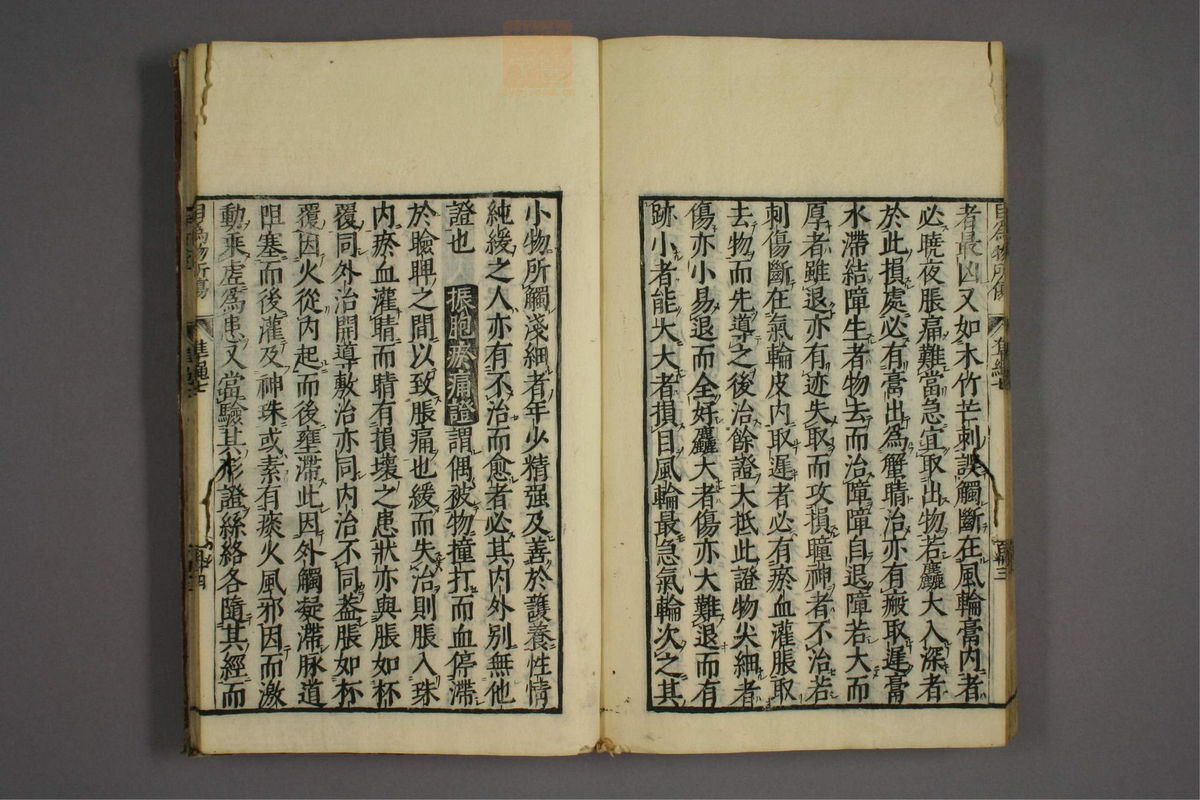 者最凶又如木竹芒刺誤觸斷在風輪膏內者
必曉夜脹痛難當急宜取出物若麤大入深者
於此損處必有膏出爲蟹睛治亦有瘢取遲膏
水滯結障生者物去而治障障自退障若大而
厚者雖退亦有迹失取而攻損瞳神者不治若
刺傷斷在氣輪皮內取遲者必有瘀血灌脹取
去物而先導之後治餘證大抵此證物尖細者
傷亦小易退而全好麤大者傷亦大難退而有
跡小者能大大者損目風輪最急氣輪次之其
小物所觸淺細者年少精强及善於護養性情
純緩之人亦有不治而愈者必其內外別無他
證也 振胞瘀痛證 謂偶被物撞打而血停滯
於瞼睥之間以致脹痛也緩而失治則脹入珠
內瘀血灌睛而睛有損壞之患狀亦與脹如杯
覆同外治開導敷治亦同內治不同蓋脹如杯
覆因火從內起而後壅滯此因外觸凝滯脉道
阻塞而後灌及神珠或素有痰火風邪因而激
動乘虛爲患又當驗其形證絲絡各隨其經而
目爲物所傷